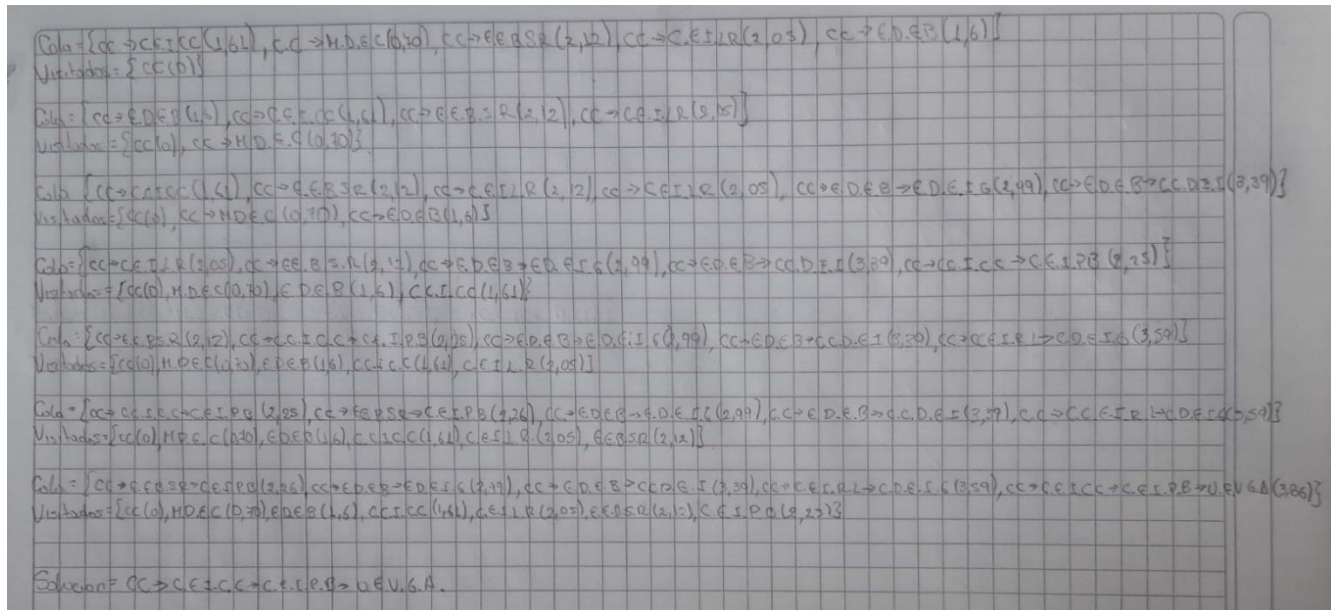 Cola={CC→C.E.I.CC(1,61), C.C→H.D.E.C(0,70), CC→E.E.B.S.R(2,12), CC→C.E.I.L.R(2,05), CC→E.D.E.B(1,6)}
Visitados={CC(0)}
Cola={CC→E.D.E.B(1,6), CC→C.E.I.CC(1,61), CC→E.E.B.S.R(2,12), CC→C.E.I.L.R(2,05)}
Visitados={CC(0), CC→H.D.E.C(0,70)}
Cola {CC→C.E.I.CC(1,61), CC→E.E.B.S.R(2,12), CC→C.E.I.L.R(2,12), CC→C.E.I.L.R(2,05), CC→E.D.E.B→E.D.E.I.G(2,99), CC→E.D.E.B→CC.D.E.I(3,39)}
Visitados={CC(0), CC→H.D.E.C(0,70), CC→E.D.E.B(1,6)}
Cola={CC→C.E.I.L.R(2,05), CC→E.E.B.S.R(2,12), CC→E.D.E.B→E.D.E.I.G(2,99), CC→E.D.E.B→CC.D.E.I(3,39), CC→C.E.I.CC→C.E.I.P.B(2,25)}
Visitados={CC(0), H.D.E.C(0,70), E.D.E.B(1,6), C.E.I.CC(1,61)}
Cola={CC→E.E.B.S.R(2,12), CC→C.E.I.C.C→C.E.I.P.B(2,25), CC→E.D.E.B→E.D.E.I.G(2,99), CC→E.D.E.B→C.C.D.E.I(3,39), CC→C.E.I.R.L→C.D.E.I.G(3,59)}
Visitados={CC(0), H.D.E.C(0,70), E.D.E.B(1,6), C.E.I.C.C(1,61), C.E.I.L.R(2,05)}
Cola={CC→C.E.I.C.C→C.E.I.P.B(2,25), CC→E.E.B.S.R→C.E.I.P.B(2,26), CC→E.D.E.B→E.D.E.I.G(2,99), C.C→E.D.E.B→C.C.D.E.I(3,39), C.C→C.E.I.R.L→C.D.E.I.G(3,59)}
Visitados={CC(0), H.D.E.C(0,70), E.D.E.B(1,6), C.E.I.C.C(1,61), C.E.I.L.R(2,05), E.E.B.S.R(2,12)}
Cola={CC→E.E.B.S.R→C.E.I.P.B(2,26), CC→E.D.E.B→E.D.E.I.G(2,99), CC→E.D.E.B→CC.D.E.I(3,39), CC→C.E.I.R.L→C.D.E.I.G(3,59), CC→C.E.I.CC→C.E.I.P.B→U.E.V.G.A(3,86)}
Visitados={CC(0), H.D.E.C(0,70), E.D.E.B(1,6), C.E.I.CC(1,61), C.E.I.L.R(2,05), E.E.B.S.R(2,12), C.E.I.P.B(2,25)}
Solucion= CC→C.E.I.CC→C.E.I.P.B→U.E.V.G.A.